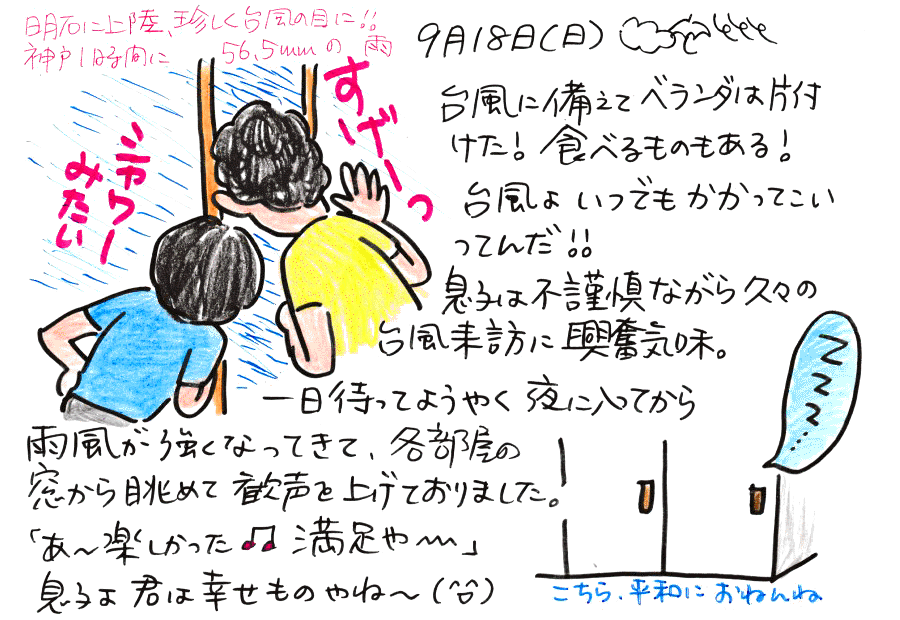 明石に上陸、珍しく台風の目に!!
神戸は1時間に 56.5mmの 雨
9月18日(日)
すげーっ
シャワー
みたい
台風に備えてベランダは片付
けた!食べるものもある!
台風よ いつでもかかってこい
ってんだ!!
息子は不謹慎ながら久々の
台風来訪に興奮気味。
一日待ってようやく夜に入ってから
雨風が強くなってきて、各部屋の
窓から眺めて歓声を上げておりました。
「あ〜楽しかった♫ 満足や〜」
息子よ君は幸せものやね〜(^^)
ZZZ...
こちら、平和におねんね